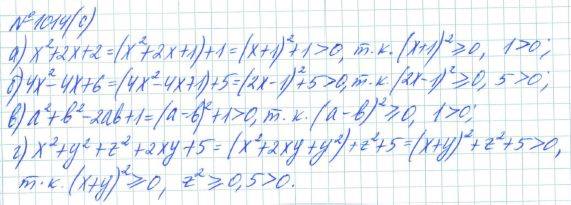 №1014(с)
а) x²+2x+2=(x²+2x+1)+1=(x+1)²+1>0, т.к. (x+1)²⩾0, 1>0;
б) 4x²-4x+6=(4x²-4x+1)+5=(2x-1)²+5>0, т.к. (2x-1)²⩾0, 5>0;
в) a²+b²-2ab+1=(a-b)²+1>0, т.к. (a-b)²⩾0, 1>0;
г) x²+y²+z²+2xy+5=(x²+2xy+y²)+z²+5=(x+y)²+z²+5>0,
т.к. (x+y)²⩾0, z²⩾0, 5>0.